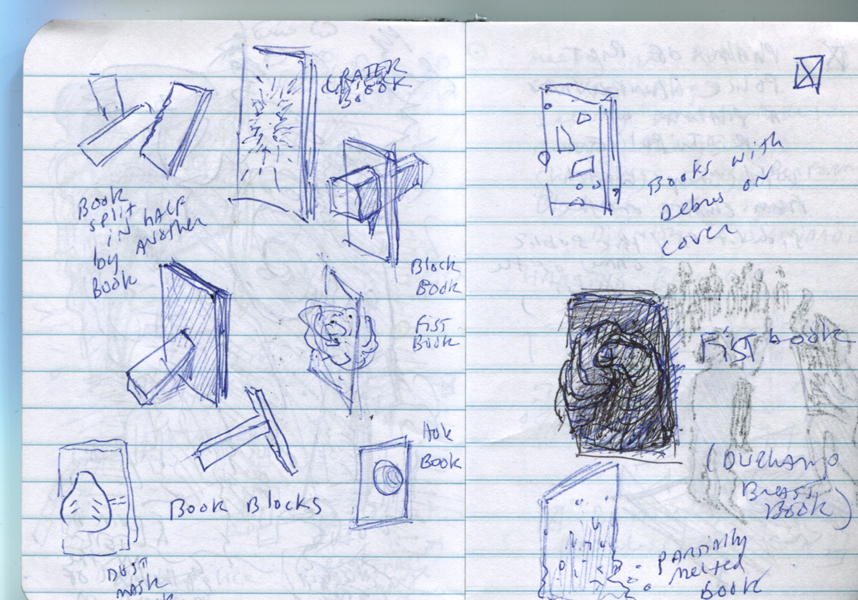 CRATER
BOOK
Book
split
in HALF
by ANOTHER
Book
Block
Book
Fist
Book
Book Blocks
Book
DUST
MASK
Books with
Debris on
cover
Fist book
(DUCHAMP
Breast
Book)
PARTIALLY
Melted
book